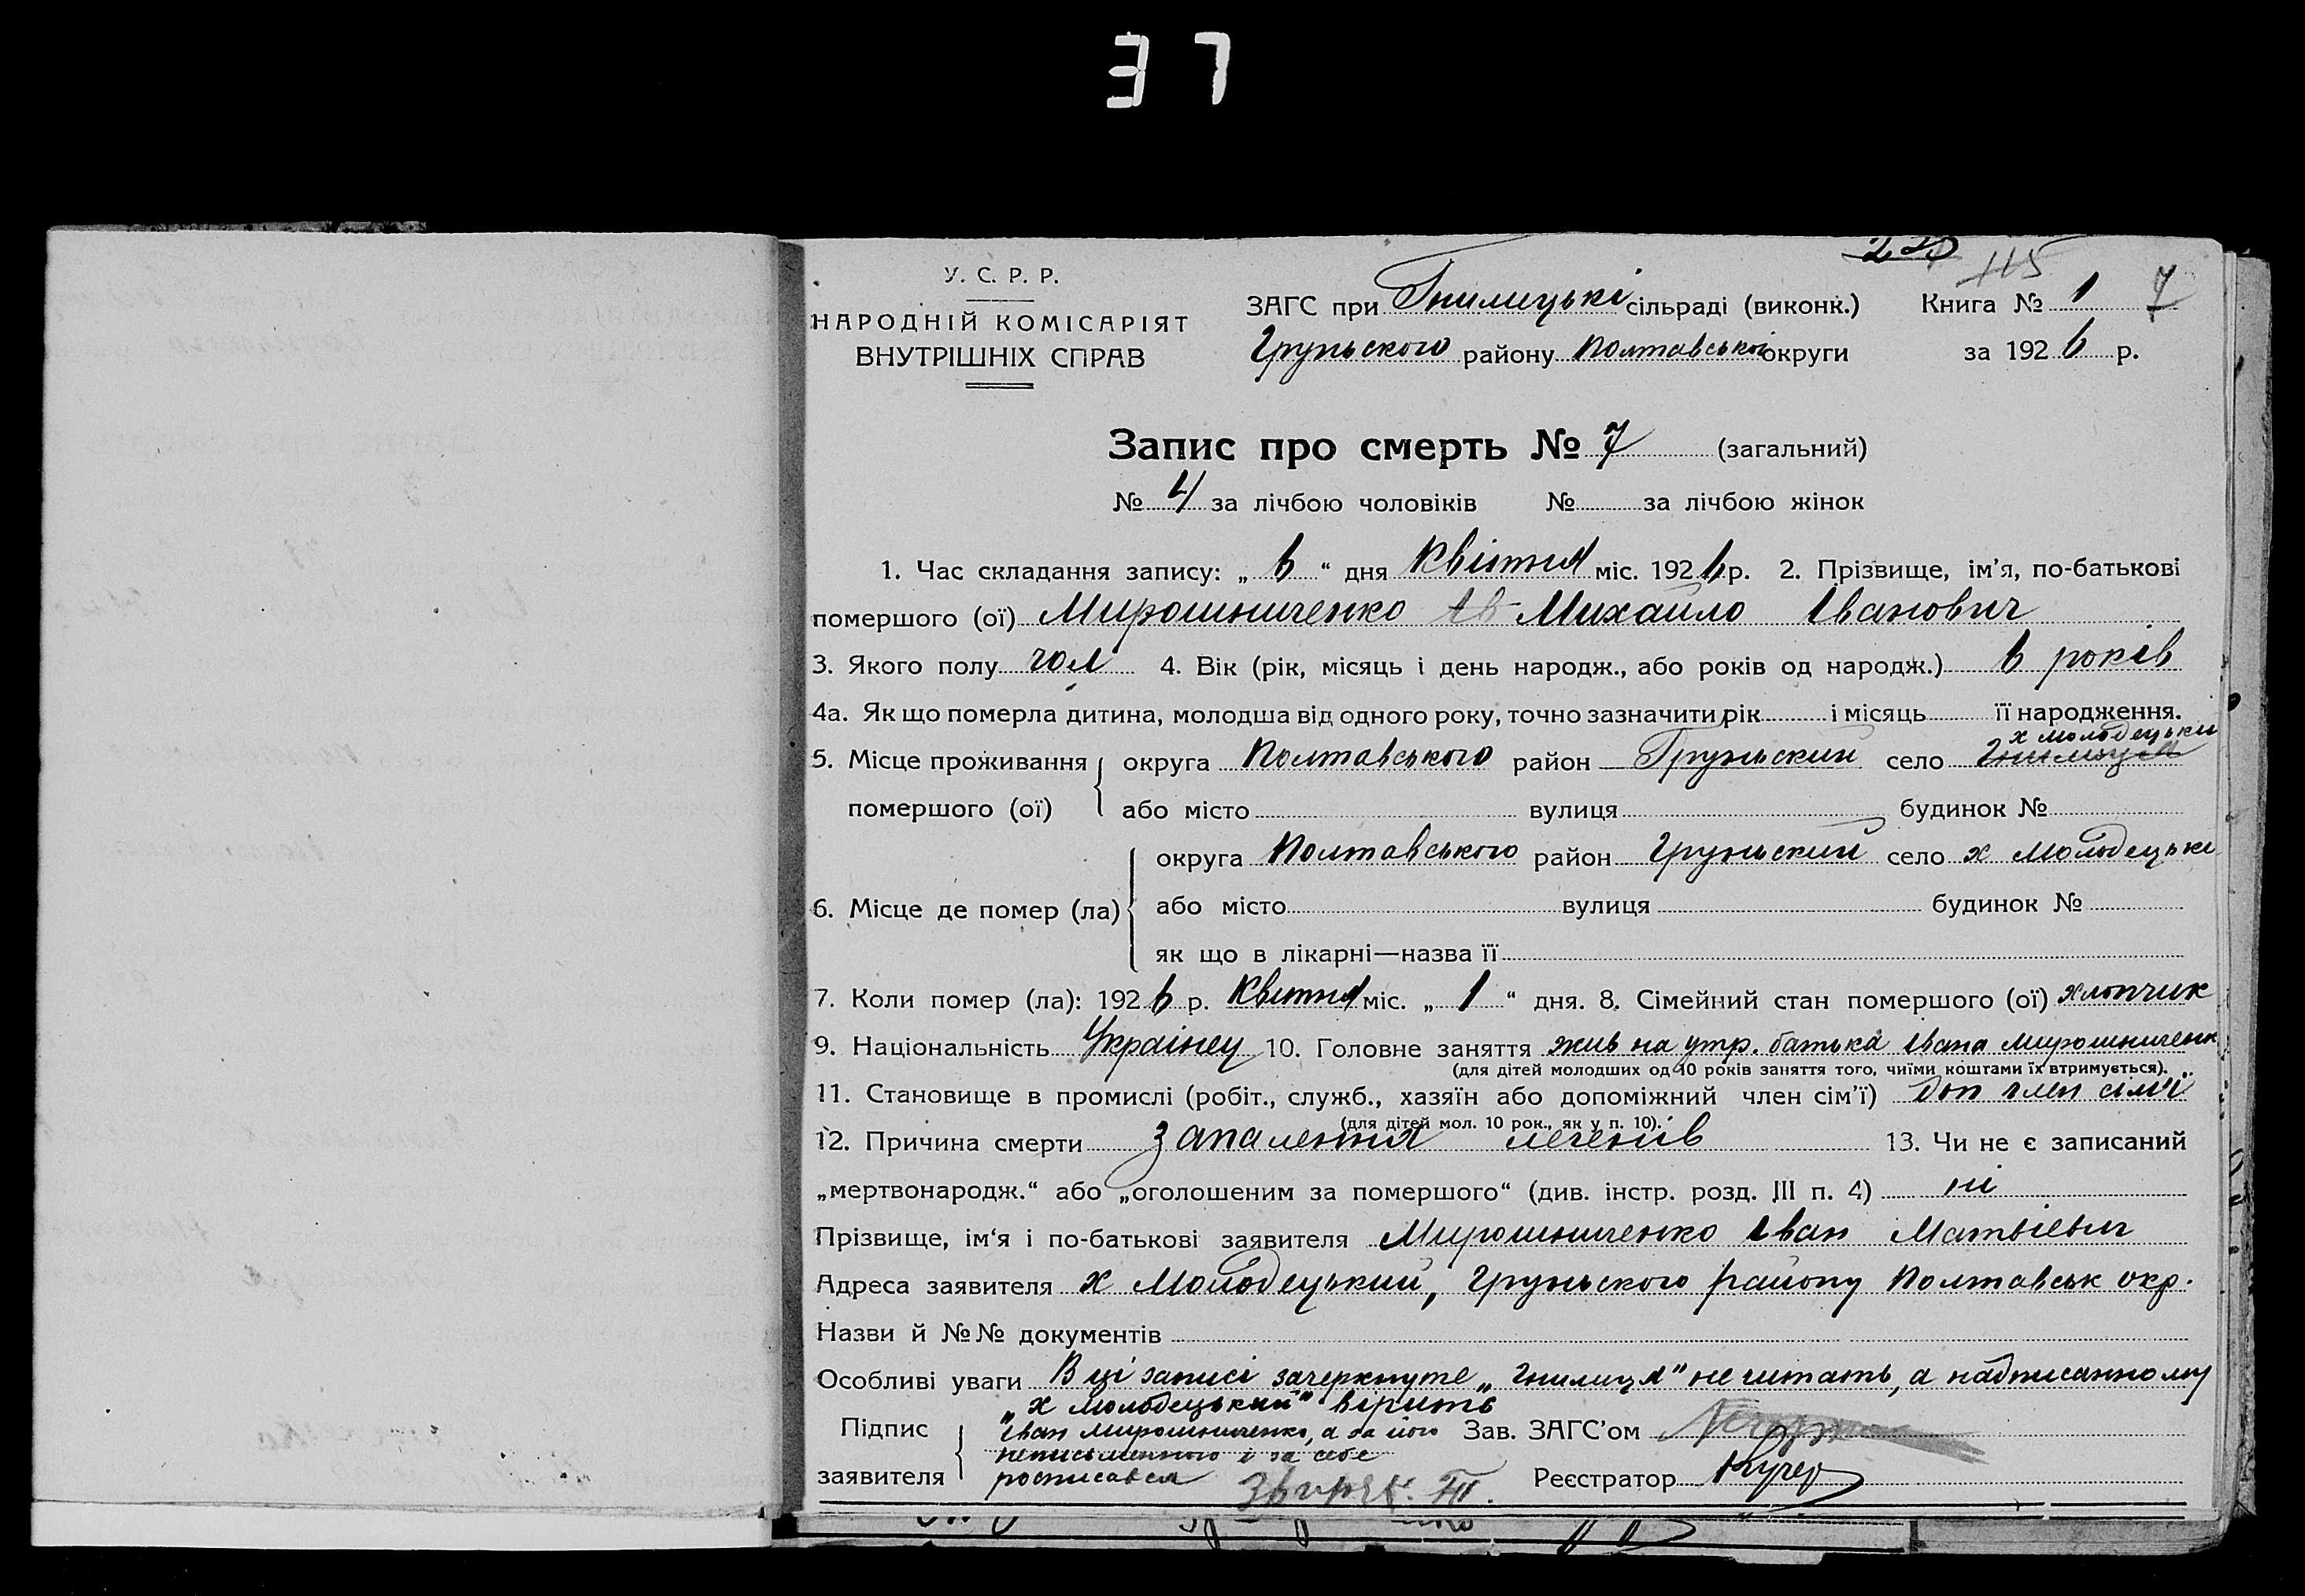 37
225 115
У. С. Р. Р.
НАРОДНІЙ КОМІСАРІЯТ
ВНУТРІШНІХ СПРАВ
ЗАГС при Гнилицькі сільраді (виконк.) Книга № 1 7
Грунського району Полтавської округи за 1926 р.
Запис про смерть № 7 (загальний)
№ 4 за лічбою чоловіків № за лічбою жінок
1. Час складання запису: „6“ дня Квітня міс. 1926 р. 2. Прізвище, ім’я, по-батькові
помершого (ої) Мирошниченко Ів Михайло Іванович
3. Якого полу чол 4. Вік (рік, місяць і день народж., або років од народж.) 6 років
4а. Як що померла дитина, молодша від одного року, точно зазначити рік і місяць її народження.
х Молодецьки
5. Місце проживання помершого (ої) округа Полтавського район Груньский село Гнилиця
або місто вулиця будинок №
6. Місце де помер (ла) округа Полтавського район Груньский село х Молодецьки
або місто вулиця будинок №
як що в лікарні—назва її
7. Коли помер (ла): 1926 р. Квітня міс. „1“ дня. 8. Сімейний стан помершого (ої) хлопчик
9. Національність Українец 10. Головне заняття жив на утр. батька Івана Мирошниченк
(для дітей молодших од 10 років заняття того, чиїми коштами їх втримується).
11. Становище в промислі (робіт., служб., хазяїн або допоміжний член сім’ї) доп член сімʼї
(для дітей мол. 10 рок., як у п. 10).
12. Причина смерти запалення легенів 13. Чи не є записаний
„мертвонародж.“ або „оголошеним за помершого“ (див. інстр. розд. III п. 4) ні
Прізвище, ім‘я і по-батькові заявителя Мирошниченко Іван Матвієвич
Адреса заявителя х Молодецький, Груньского району Полтавськ окр.
Назви й №№ документів
Особливі уваги В ці записі зачеркнуте „Гнилиця“ не читать, а надписанному
„х Молодецький“ вірить
Підпис заявителя Іван Мирошниченко, а за його
неписьменного і за себе
росписався
Зав. ЗАГС’ом
Реєстратор Кучер